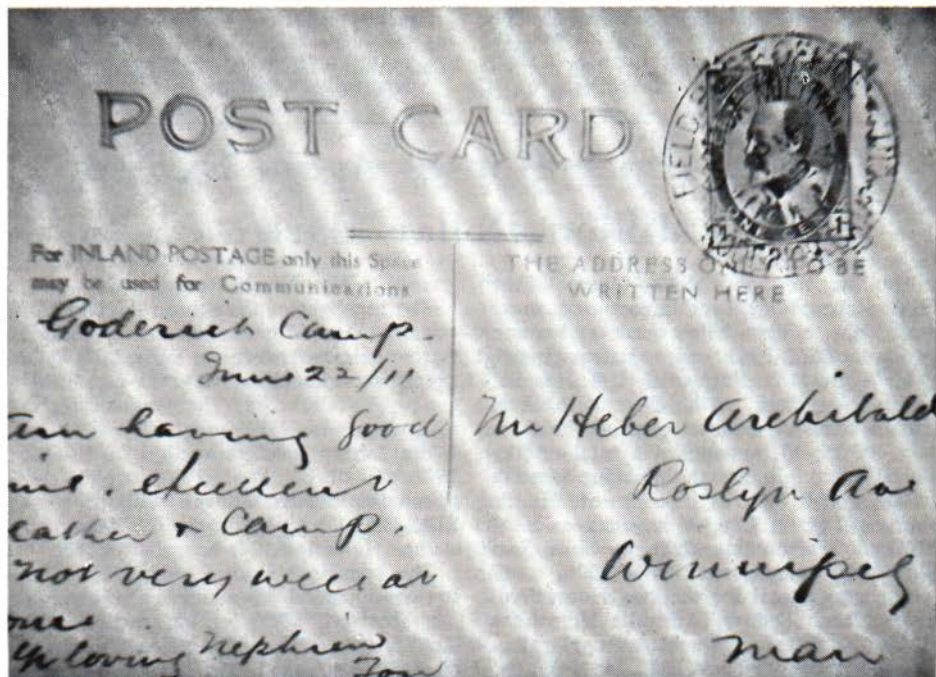 POST CARD
FIELD
For INLAND POSTAGE only this Space
may be used for Communications
THE ADDRESS ONLY TO BE
WRITTEN HERE
Goderich Camp.
June 22/11
am having good
ime. excellent
eather & Camp.
not very well at
ome
Yr loving Nephew
Tom
Mr Heber Archibald
Roslyn Ave
Winnipeg
Man